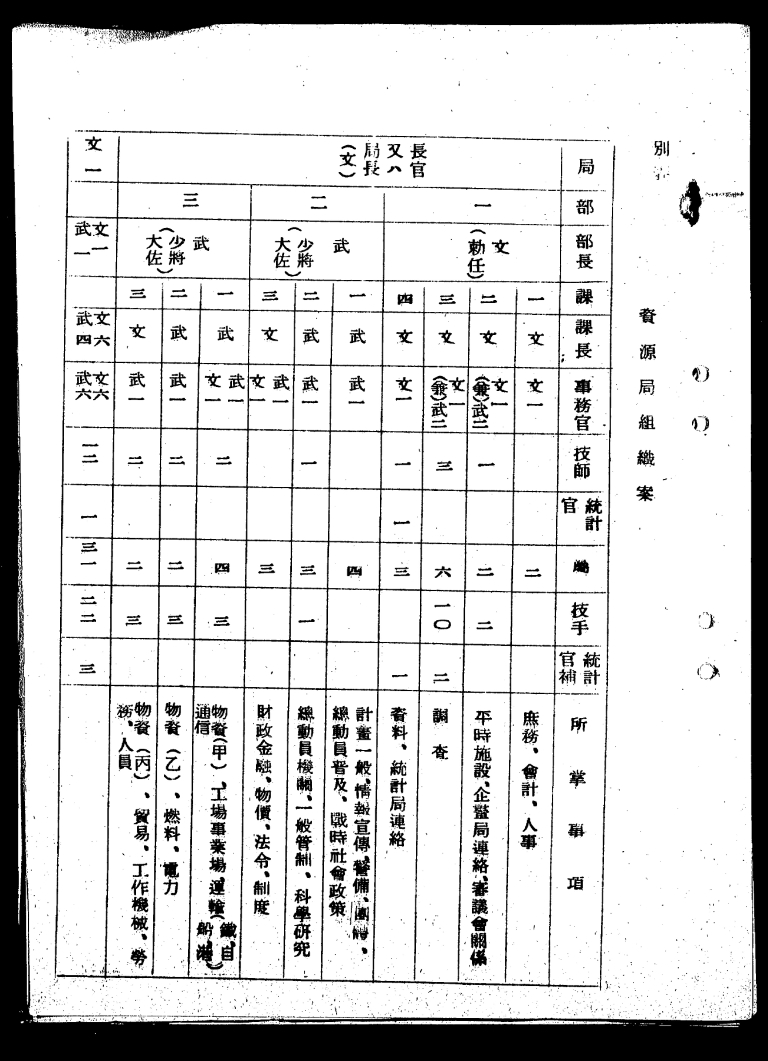 別
資源局組織案
局 長官又ハ局長(文) 文一
部 一 二 三
部長 文(勅任) 武(少將大佐) 武(少將大佐) 文一武一
課 一 二 三 四 一 二 三 一 二 三
課長 文 文 文 文 武 武 文 武 武 文 文六武四
事務官 文一 文一(兼)武二 文一(兼)武二 文一 武一 武一 武一文一 武一文一 武一 武一 文六武六
技師 一 三 一 一 二 二 二 一二
統計官 一 一
屬 二 二 六 三 四 三 三 四 二 二 三一
技手 二 一〇 一 三 三 三 二二
統計官補 二 一 三
所掌事項
庶務、會計、人事
平時施設、企畫局連絡、審議會關係
調査
資料、統計局連絡
計畫一般、情報宣傳、警備、團體、
總動員普及、戰時社會政策
總動員機關、一般管制、科學研究
財政金融、物價、法令、制度
物資(甲)、工場事業場、運輸(鐵、自、船、港)
通信
物資(乙)、燃料、電力
物資(丙)、貿易、工作機械、勞
務、人員